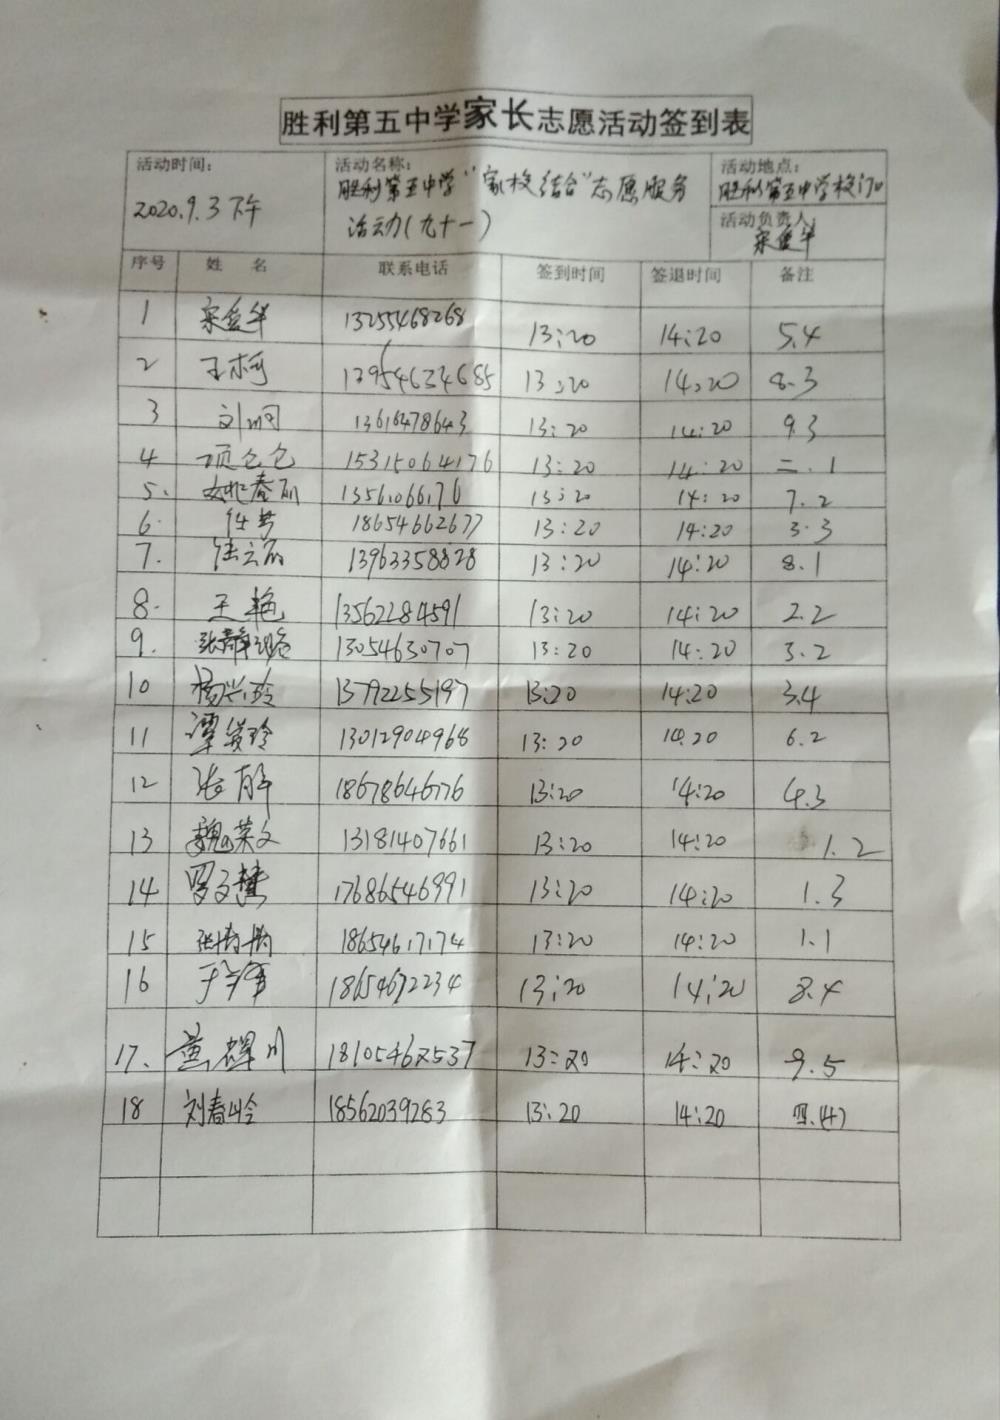 胜利第五中学家长志愿活动签到表
活动时间: 活动名称: 活动地点:
2020.9.3下午 胜利第五中学"家校结合"志愿服务 胜利第五中学校门口
活动(九十一) 活动负责人:
序号 姓 名 联系电话 签到时间 签退时间 备注
1 13255468268 13:20 14:20 5.4
2 13954634685 13:20 14:20 8.3
3 13616478643 13:20 14:20 9.3
4 项仓仓 15315064176 13:20 14:20 二.1
5. 姚春丽 13561066176 13:20 14:20 7.2
6. 任芳 18654662677 13:20 14:20 3.3
7. 陆云丽 13963358828 13:20 14:20 8.1
8. 王艳 13562284591 13:20 14:20 2.2
9. 13054630707 13:20 14:20 3.2
10 杨兴玲 13792255197 13:20 14:20 3.4
11 谭英玲 13012904968 13:20 14:20 6.2
12 张静 18678646776 13:20 14:20 4.3
13 魏荣文 13181407661 13:20 14:20 1.2
14 17686546991 13:20 14:20 1.3
15 18654617174 13:20 14:20 1.1
16 18654672234 13:20 14:20 8.4
17. 18105462537 13:20 14:20 9.5
18 刘春岭 18562039283 13:20 14:20 四.(4)